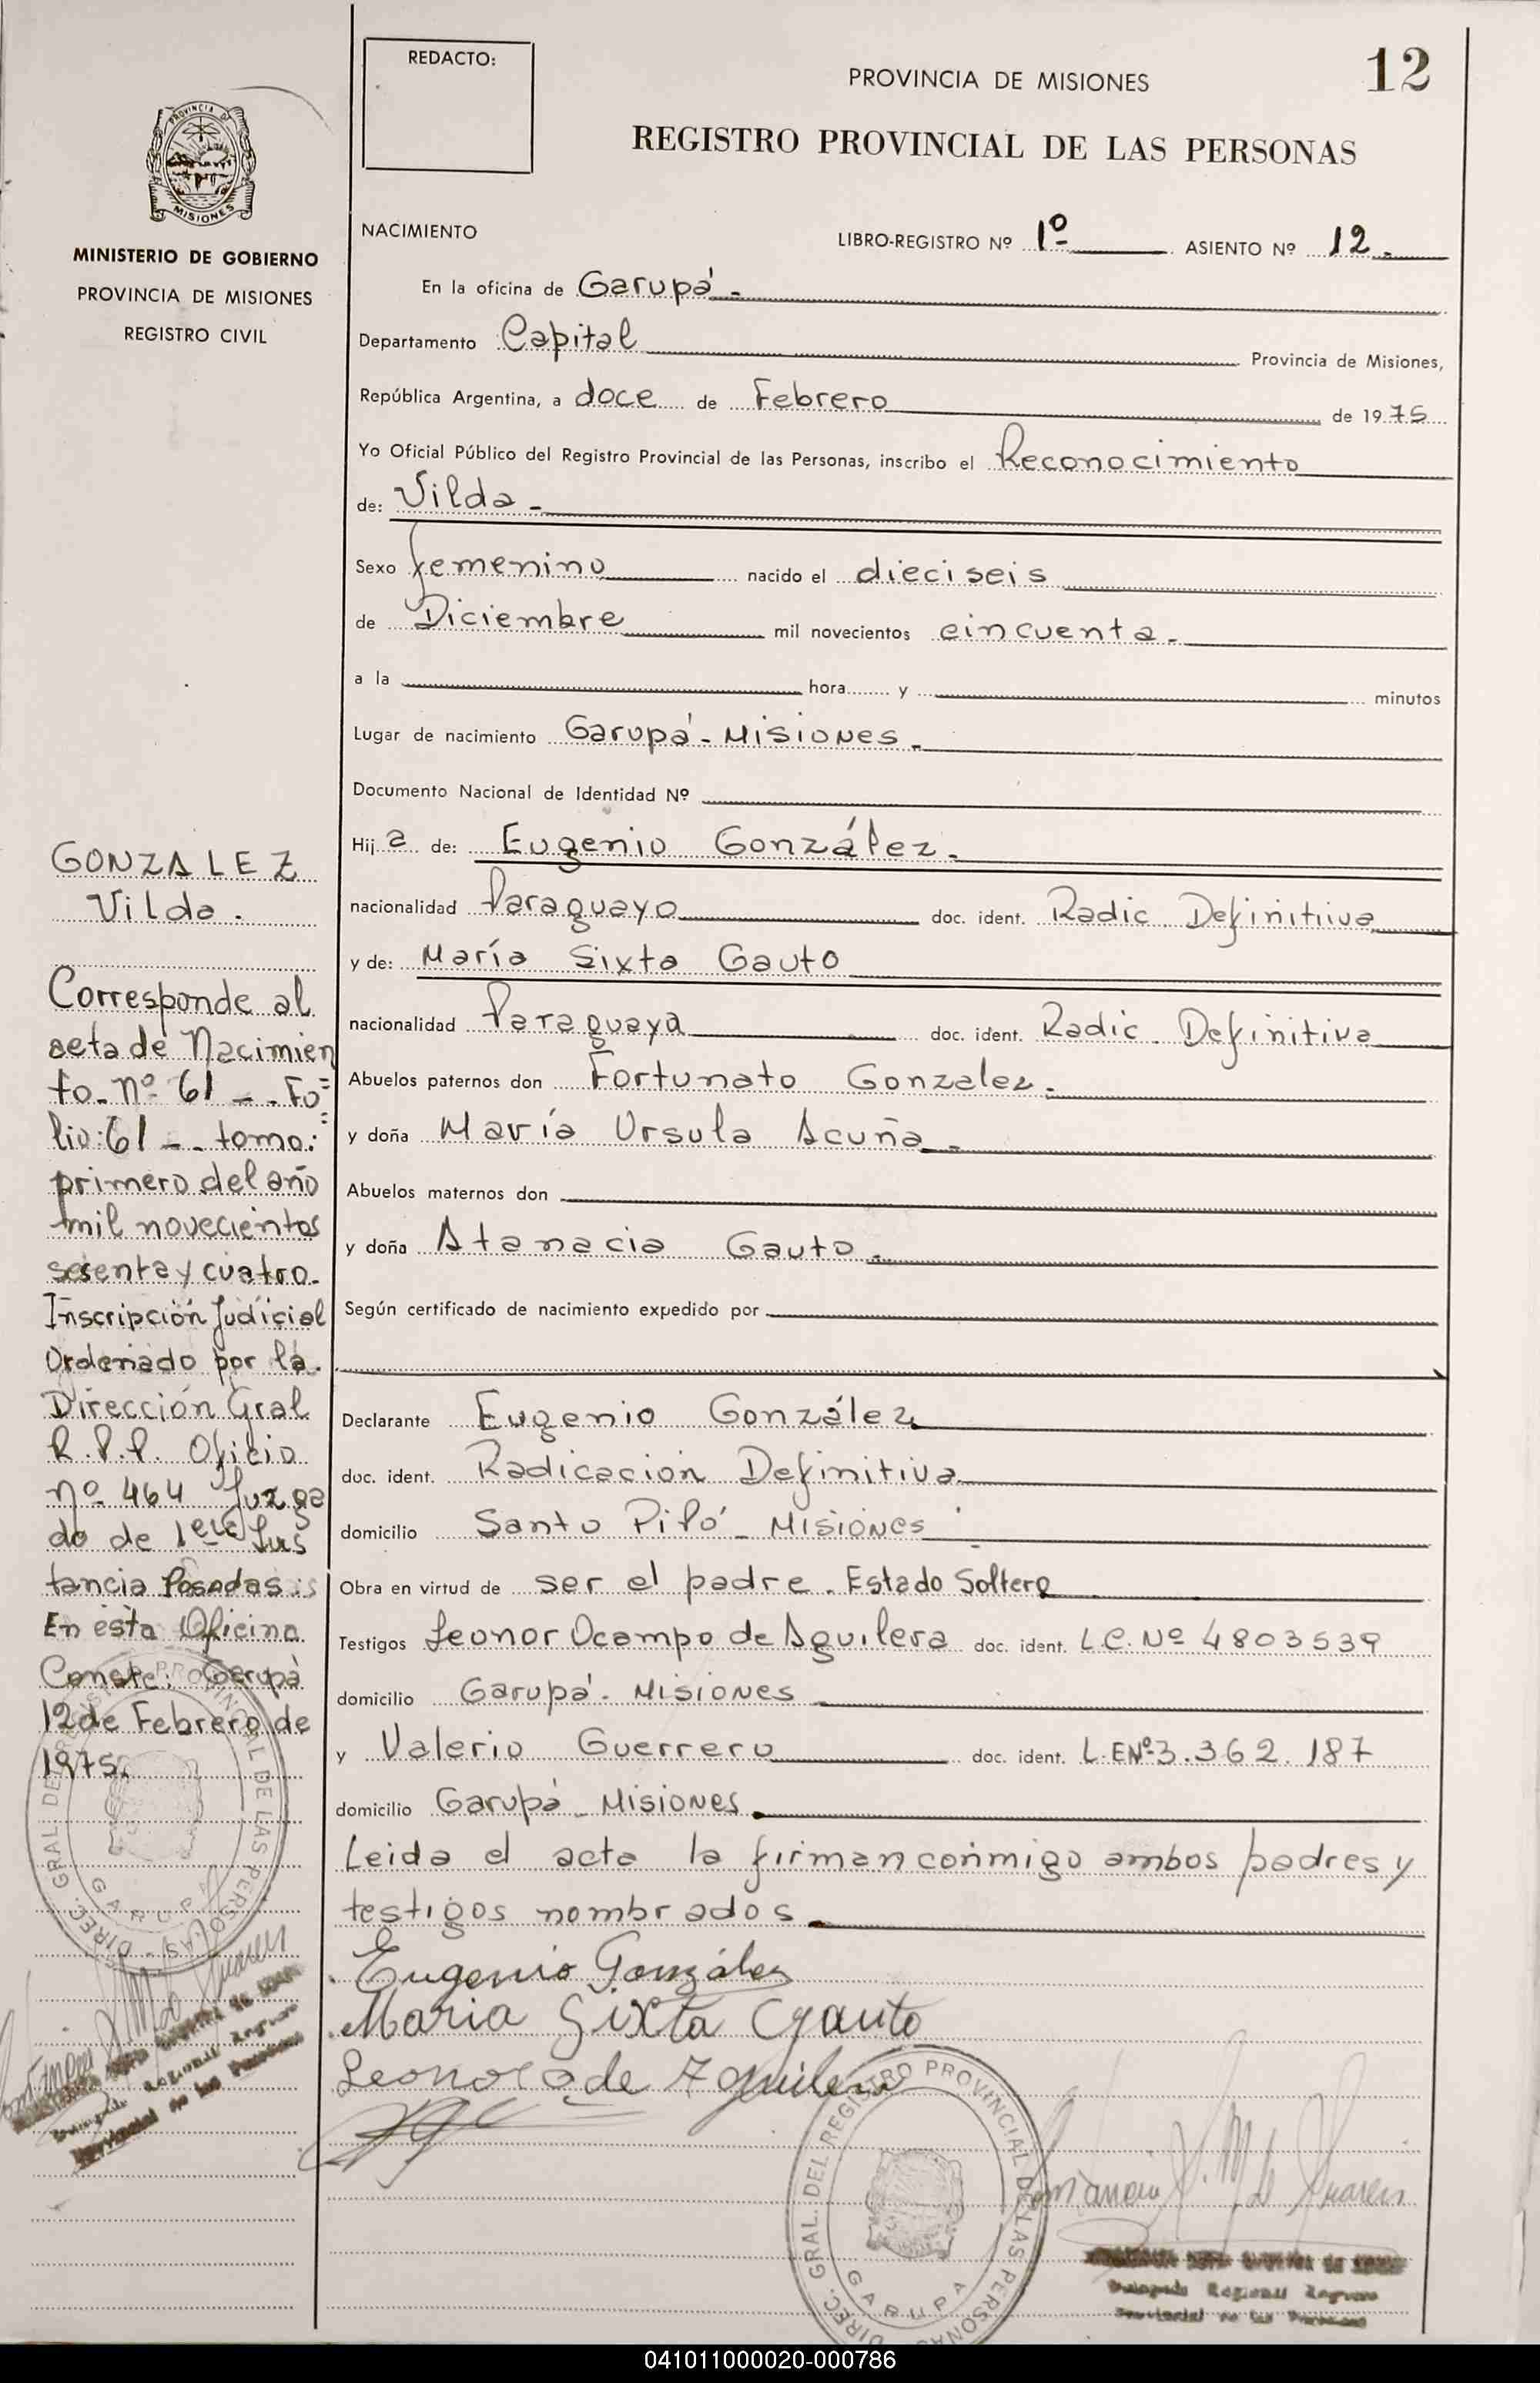 REDACTO:
PROVINCIA DE MISIONES
12
REGISTRO PROVINCIAL DE LAS PERSONAS
PROVINCIA DE
MISIONES
MINISTERIO DE GOBIERNO
PROVINCIA DE MISIONES
REGISTRO CIVIL
NACIMIENTO
LIBRO-REGISTRO Nº 1º ASIENTO Nº 12.
En la oficina de Garupá -
Departamento Capital Provincia de Misiones,
República Argentina, a doce de Febrero de 1975
Yo Oficial Público del Registro Provincial de las Personas, inscribo el Reconocimiento
de: Vilda -
Sexo femenino nacido el dieciseis
de Diciembre mil novecientos cincuenta -
a la hora y minutos
Lugar de nacimiento Garupá - Misiones -
Documento Nacional de Identidad Nº
Hij a de: Eugenio González.
nacionalidad Paraguayo doc. ident. Radic. Definitiva
y de: María Sixta Gauto
nacionalidad Paraguaya doc. ident. Radic. Definitiva
Abuelos paternos don Fortunato Gonzalez.
y doña María Ursula Acuña -
Abuelos maternos don
y doña Atanacia Gauto.
Según certificado de nacimiento expedido por
Declarante Eugenio González
doc. ident. Radicación Definitiva
domicilio Santo Pipó - Misiones
Obra en virtud de ser el padre. Estado Soltero
Testigos Leonor Ocampo de Aguilera doc. ident. L.C. Nº 4803539
domicilio Garupá - Misiones
y Valerio Guerrero doc. ident. L.E Nº 3.362.187
domicilio Garupá - Misiones.
Leida el acta la firman conmigo ambos padres y
testigos nombrados
Eugenio González
Maria Sixta Gauto
Leonor O. de Aguilera
GONZALEZ
Vilda.
Corresponde al
acta de Nacimien
to. Nº 61 - - Fo=
lio: 61 - - tomo:
primero del año
mil novecientos
sesenta y cuatro.
Inscripción Judicial
Ordenado por la
Dirección Gral
R.P.P. Oficio
nº 464 Juzga
do de 1era Ins
tancia Posadas
En esta Oficina
Conste: Garupá
12 de Febrero de
1975.
DIREC. GRAL. DEL REGISTRO PROVINCIAL DE LAS PERSONAS
GARUPA
DIREC. GRAL. DEL REGISTRO PROVINCIAL DE LAS PERSONAS
GARUPA
041011000020-000786